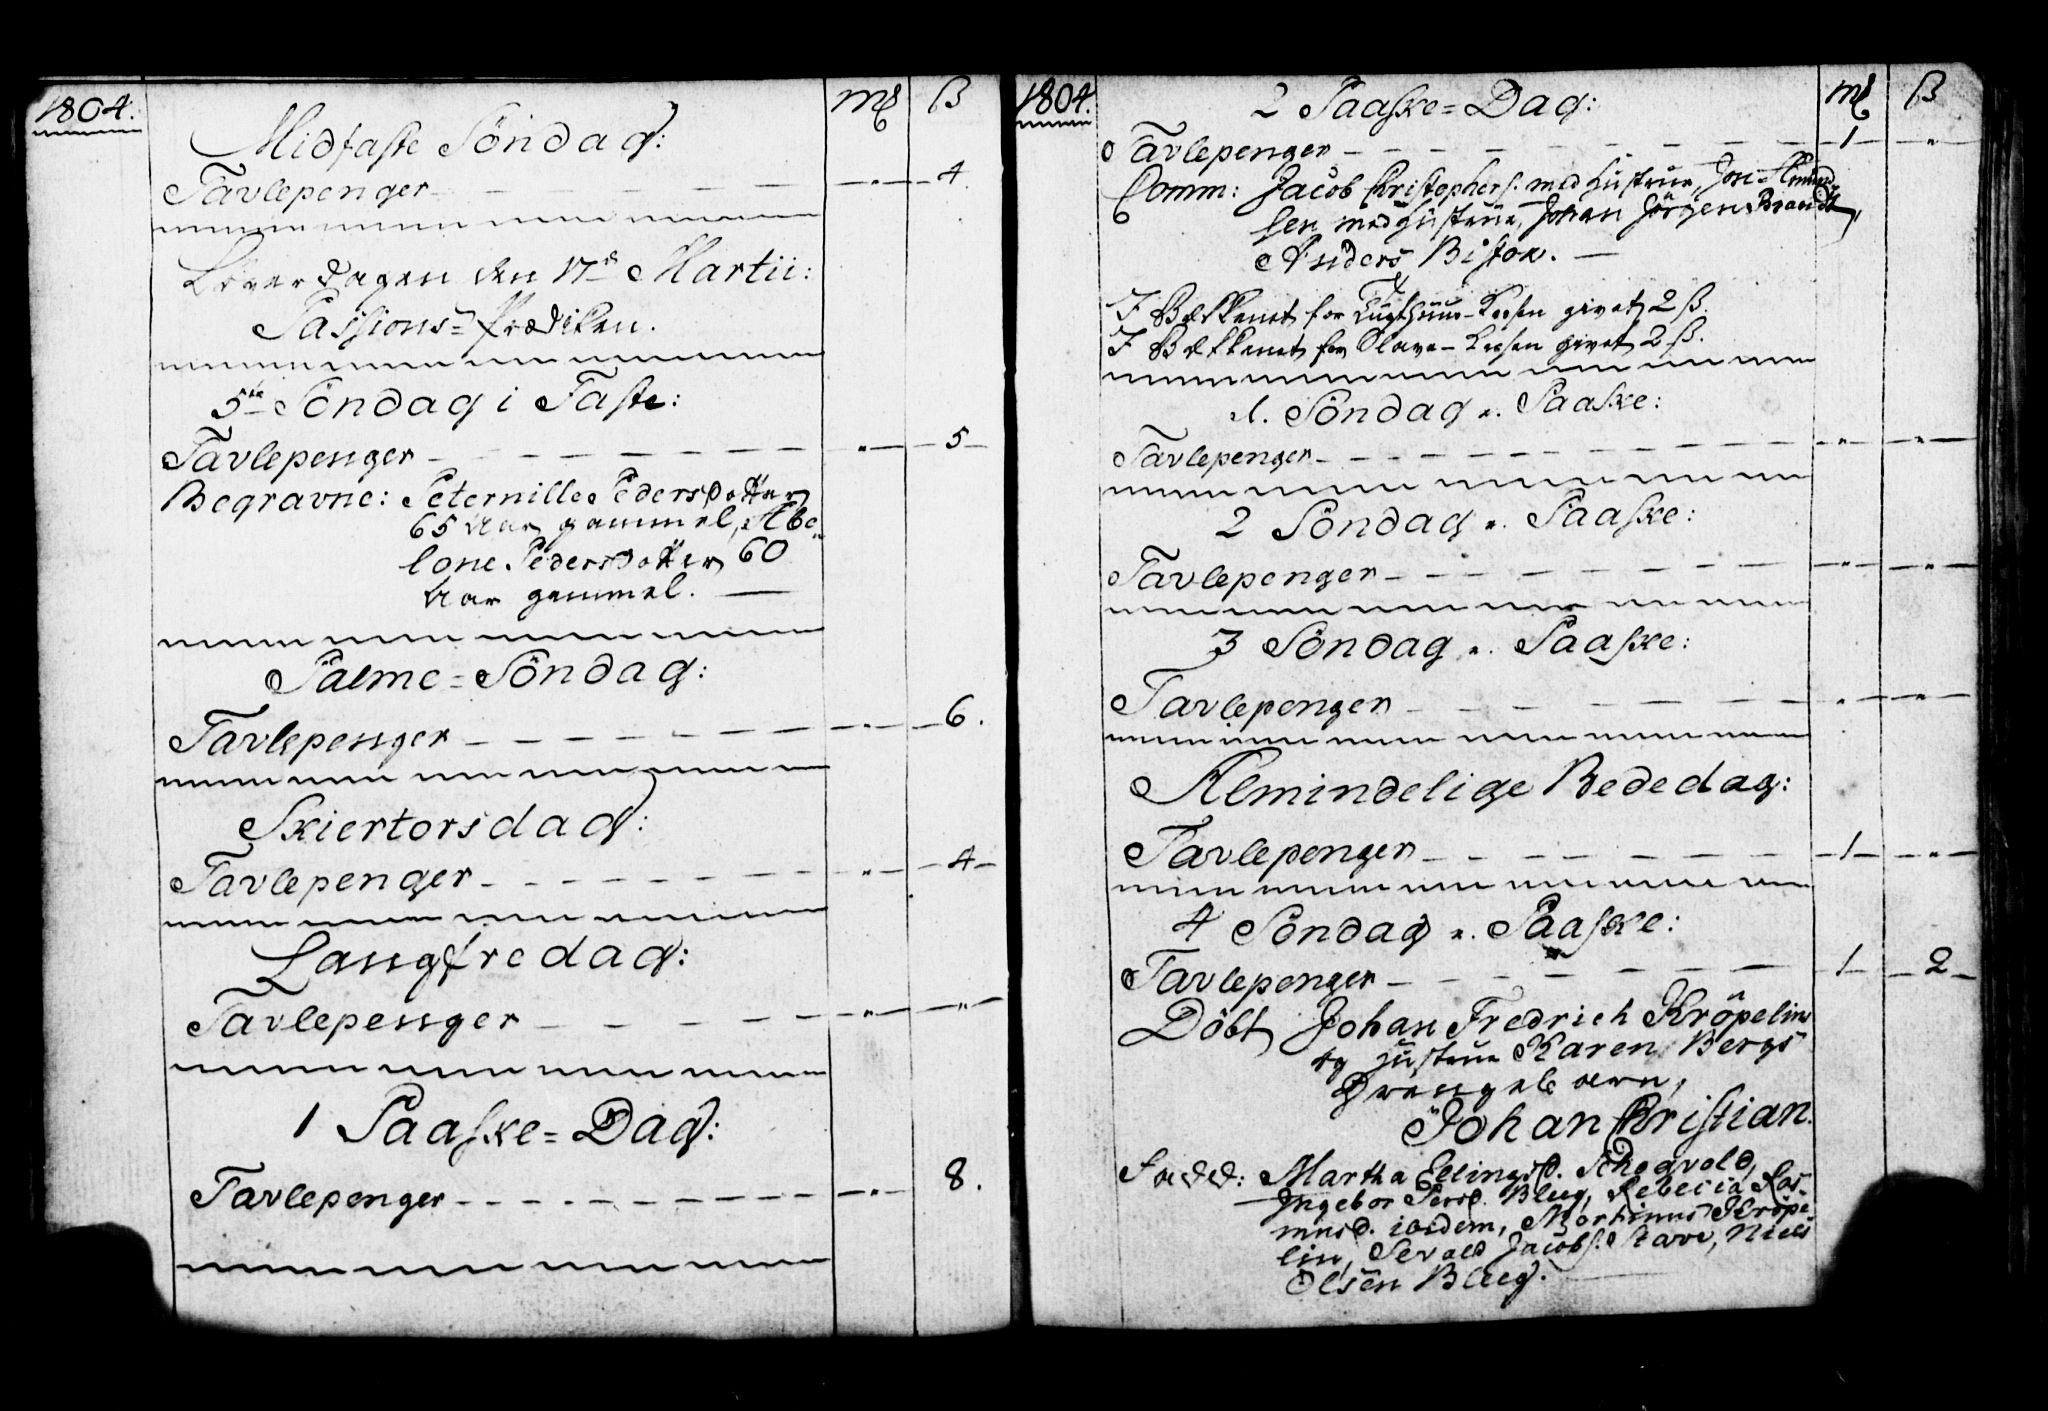 1804.
mk ß
Midfaste Söndag:
Tavlepenger - - - " - 4
Löverdagen den 17de Martii:
Passions-Prædiken.
5te Söndag i Faste:
Tavlepenger - - - " - 5 -
Begravne: Peternille Pedersdatter
65 Aar gammel, Abe-
lone Pedersdatter 60
Aar gammel. —
Palme=Söndag:
Tavlepenger - - - " - 6.
Skiertorsdag:
Tavlepenger - - - " - 4 -
Langfredag:
Tavlepenger - - - " - " -
1 Paaske=Dag:
Tavlepenger - - - " - 8.
1804.
mk ß
2 Paaske=Dag:
Tavlepenger - - - 1 - " -
Comm: Jacob Christophers. med Hustrue,
sen med Hustrue, Johan Jörgen Brandt,
Anders Biston. —
I Bekkenet for Tugthuus-Læsen givet 2 ß.
I Bekkenet for Slave-Læsen givet 2 ß.
1. Söndag e. Paaske:
Tavlepenger - - - " - " -
2 Söndag e. Paaske:
Tavlepenger - - - " - " -
3 Söndag e. Paaske:
Tavlepenger - - - " - " -
Almindelige Bededag:
Tavlepenger - - - 1 - " -
4 Söndag e. Paaske:
Tavlepenger - - - 1 - 2 -
Döbt Johan Fredrich Kröpelins
og Hustrue Karen Bergs
Drengebarn,
Johan Christian.
Fadd: Martha Ellingsd.
Ingebor Persd. Bleeg, Rebecia Ras-
musd. ibidem, Mortinus Kröpe-
lin, Sevald Jacobs. Stave, Niels
Olsen Bleeg.